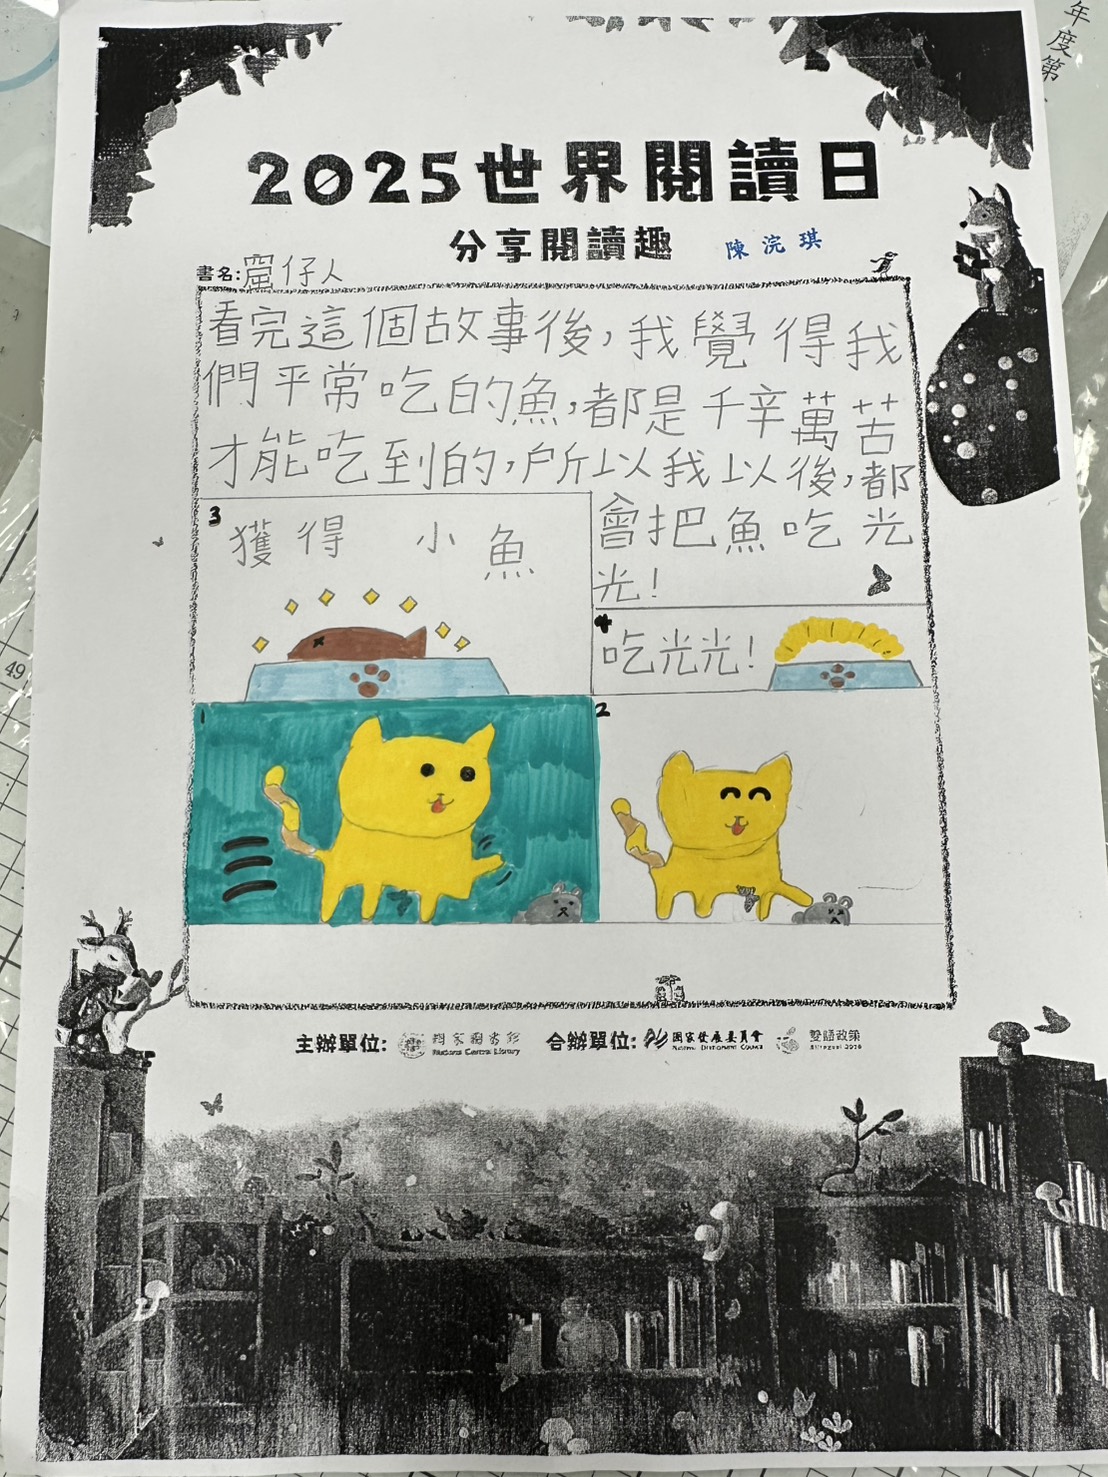 年度第
2025世界閱讀日
分享閱讀趣
陳浣琪
書名:窟仔人
看完這個故事後,我覺得我
們平常吃的魚,都是千辛萬苦
才能吃到的,所以我以後,都
會把魚吃光
光!
3
獲得 小魚
4
吃光光!
1
2
49
主辦單位: 國家圖書館
National Central Library
合辦單位: 國家發展委員會
National Development Council
雙語政策
Bilingual 2030